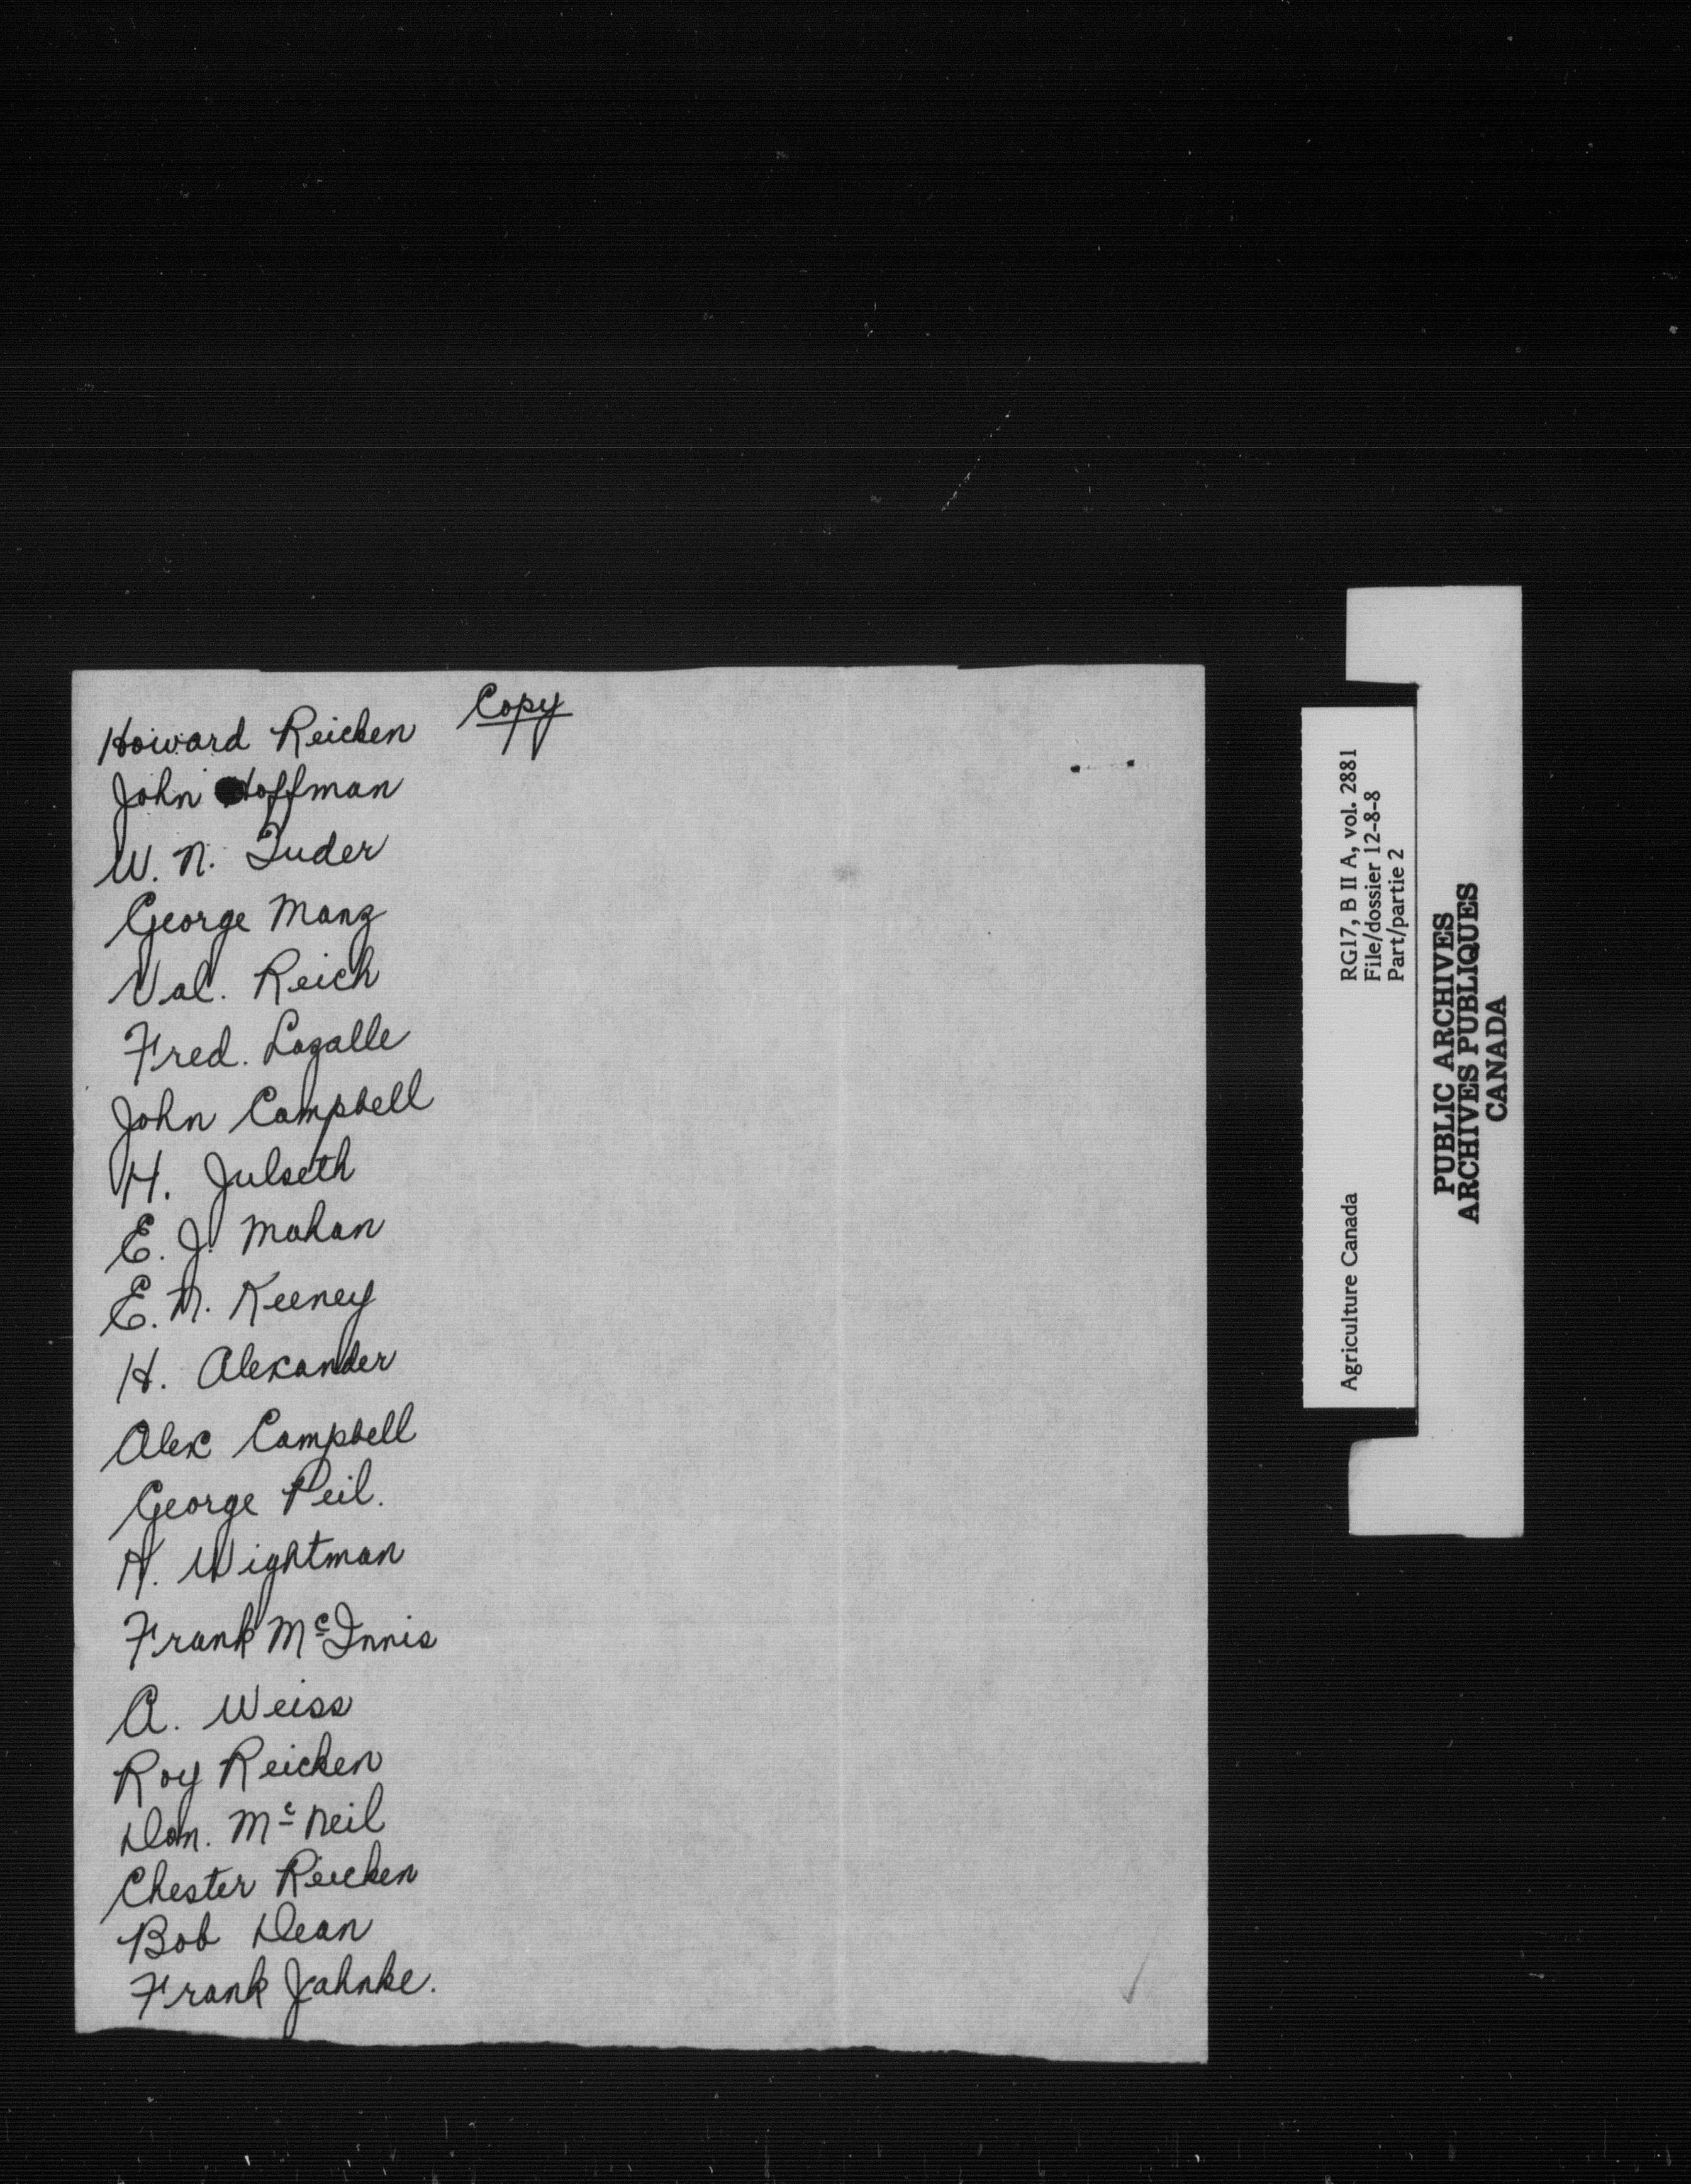 Copy
Howard Reicken
John Hoffman
W. N. Tuder
George Manz
Val. Reich
Fred. Lozalle
John Campbell
H. Julseth
E. J. Mahan
E. M. Keeney
H. Alexander
Alex Campbell
George Peil.
H. Wightman
Frank McInnis
A. Weiss
Roy Reicken
Don. Mc Neil
Chester Reicken
Bob Dean
Frank Jahnke.
Agriculture Canada
RG17, B II A, vol. 2881
File/dossier 12-8-8
Part/partie 2
PUBLIC ARCHIVES
ARCHIVES PUBLIQUES
CANADA